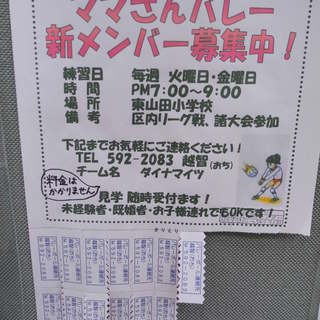 ママさんバレー
新メンバー募集中！
練習日 毎週 火曜日・金曜日
時間 PM7:00〜9:00
場所 東山田小学校
備考 区内リーグ戦、諸大会参加
下記までお気軽にご連絡ください！
TEL 592-2083 越智（おち）
チーム名 ダイナマイツ
料金は
かかりません
見学 随時受付ます！
未経験者・既婚者・お子様連れでもOKです！
きりとり